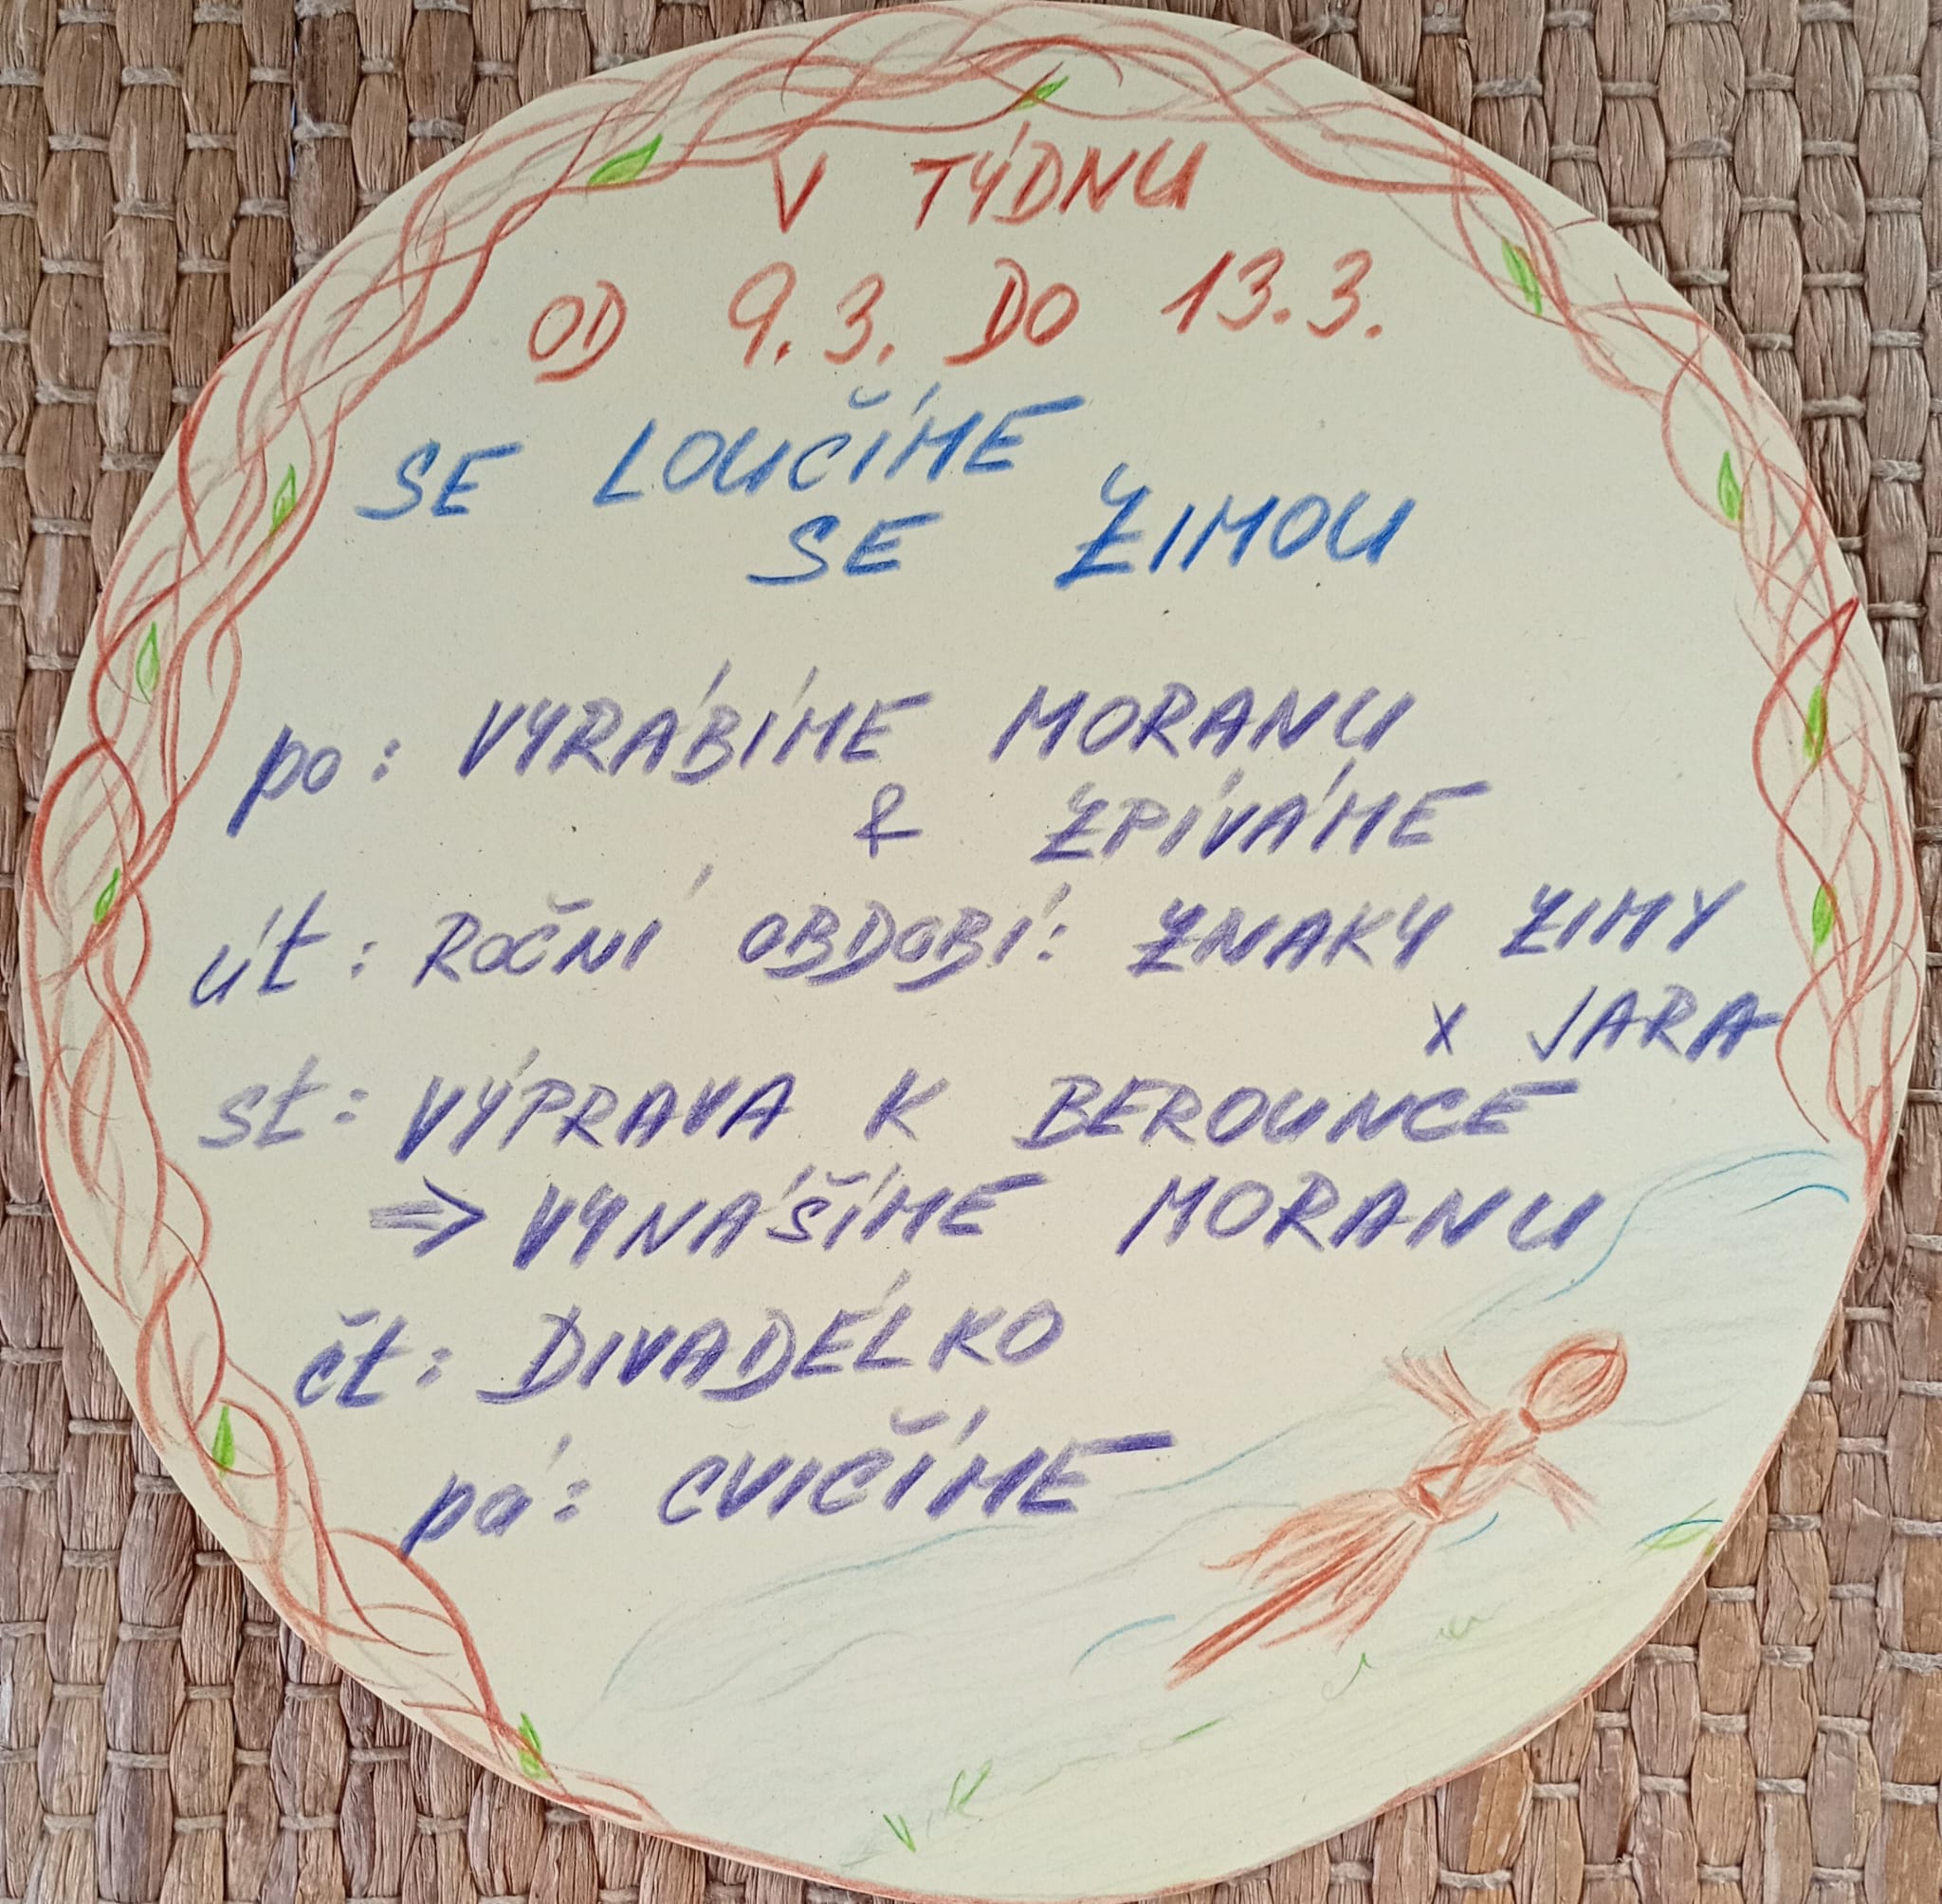 V TÝDNU
OD 9.3. DO 13.3.
SE LOUČÍME
SE ZIMOU
po: VYRÁBÍME MORANU
& ZPÍVÁME
út: ROČNÍ OBDOBÍ: ZNAKY ZIMY
x JARA
st: VÝPRAVA K BEROUNCE
⇒ VYNÁŠÍME MORANU
čt: DIVADÉLKO
pá: CVIČÍME